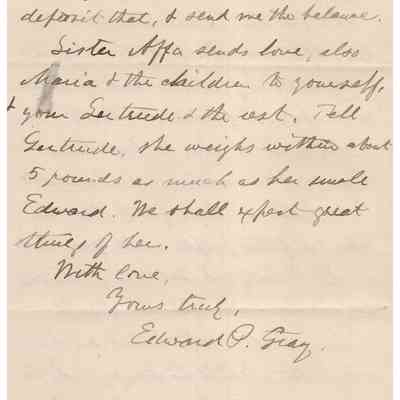 deposit that, & send me the balance.
Sister Affa sends love, also
Maria & the children to yourself,
& your Gertrude & the rest. Tell
Gertrude, she weighs within about
5 pounds as much as her small
Edward. We shall expect great
things of her.
With love,
Yours truly,
Edward P. Gray.